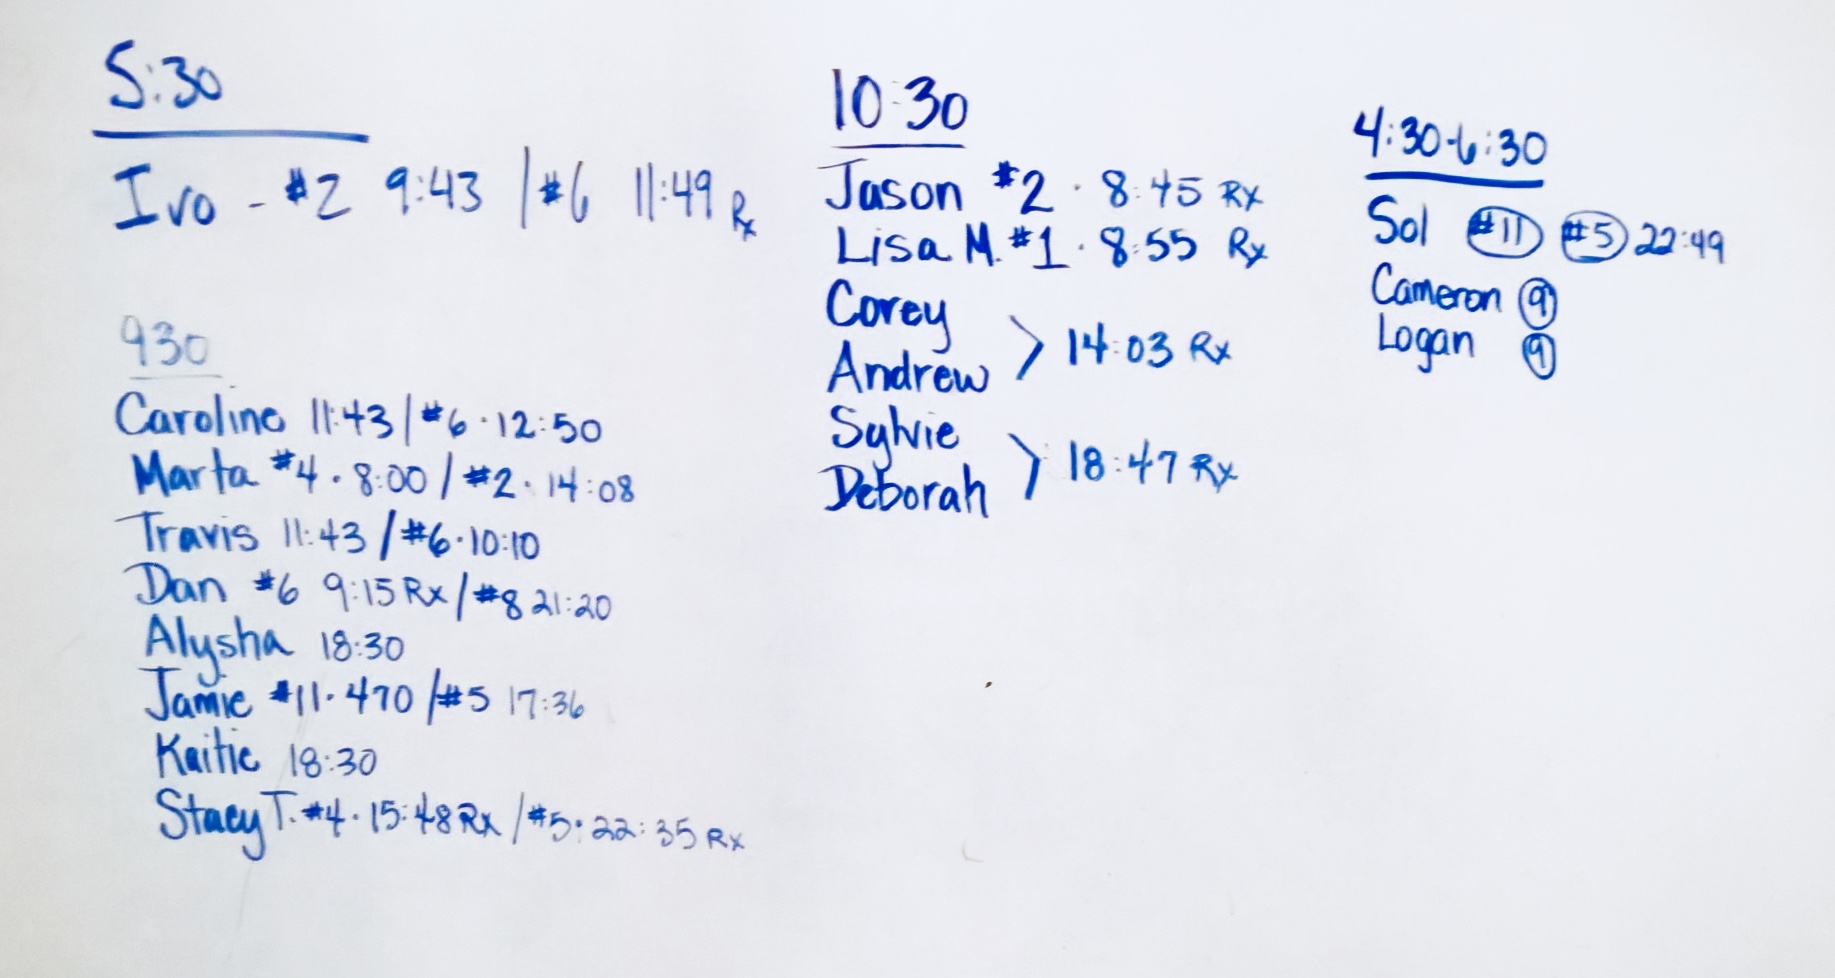 5:30
Ivo - #2 9:43 / #6 11:49 Rx
930
Caroline 11:43 / #6 · 12:50
Marta #4 · 8:00 / #2 · 14:08
Travis 11:43 / #6 · 10:10
Dan #6 9:15 Rx / #8 21:20
Alysha 18:30
Jamie #11 · 470 / #5 17:36
Kaitie 18:30
Stacy T. #4 · 15:48 Rx / #5 · 22:35 Rx
10:30
Jason #2 · 8:45 Rx
Lisa M. #1 · 8:55 Rx
Corey
Andrew > 14:03 Rx
Sylvie
Deborah > 18:47 Rx
4:30-6:30
Sol #11 #5 22:49
Cameron 9
Logan 9